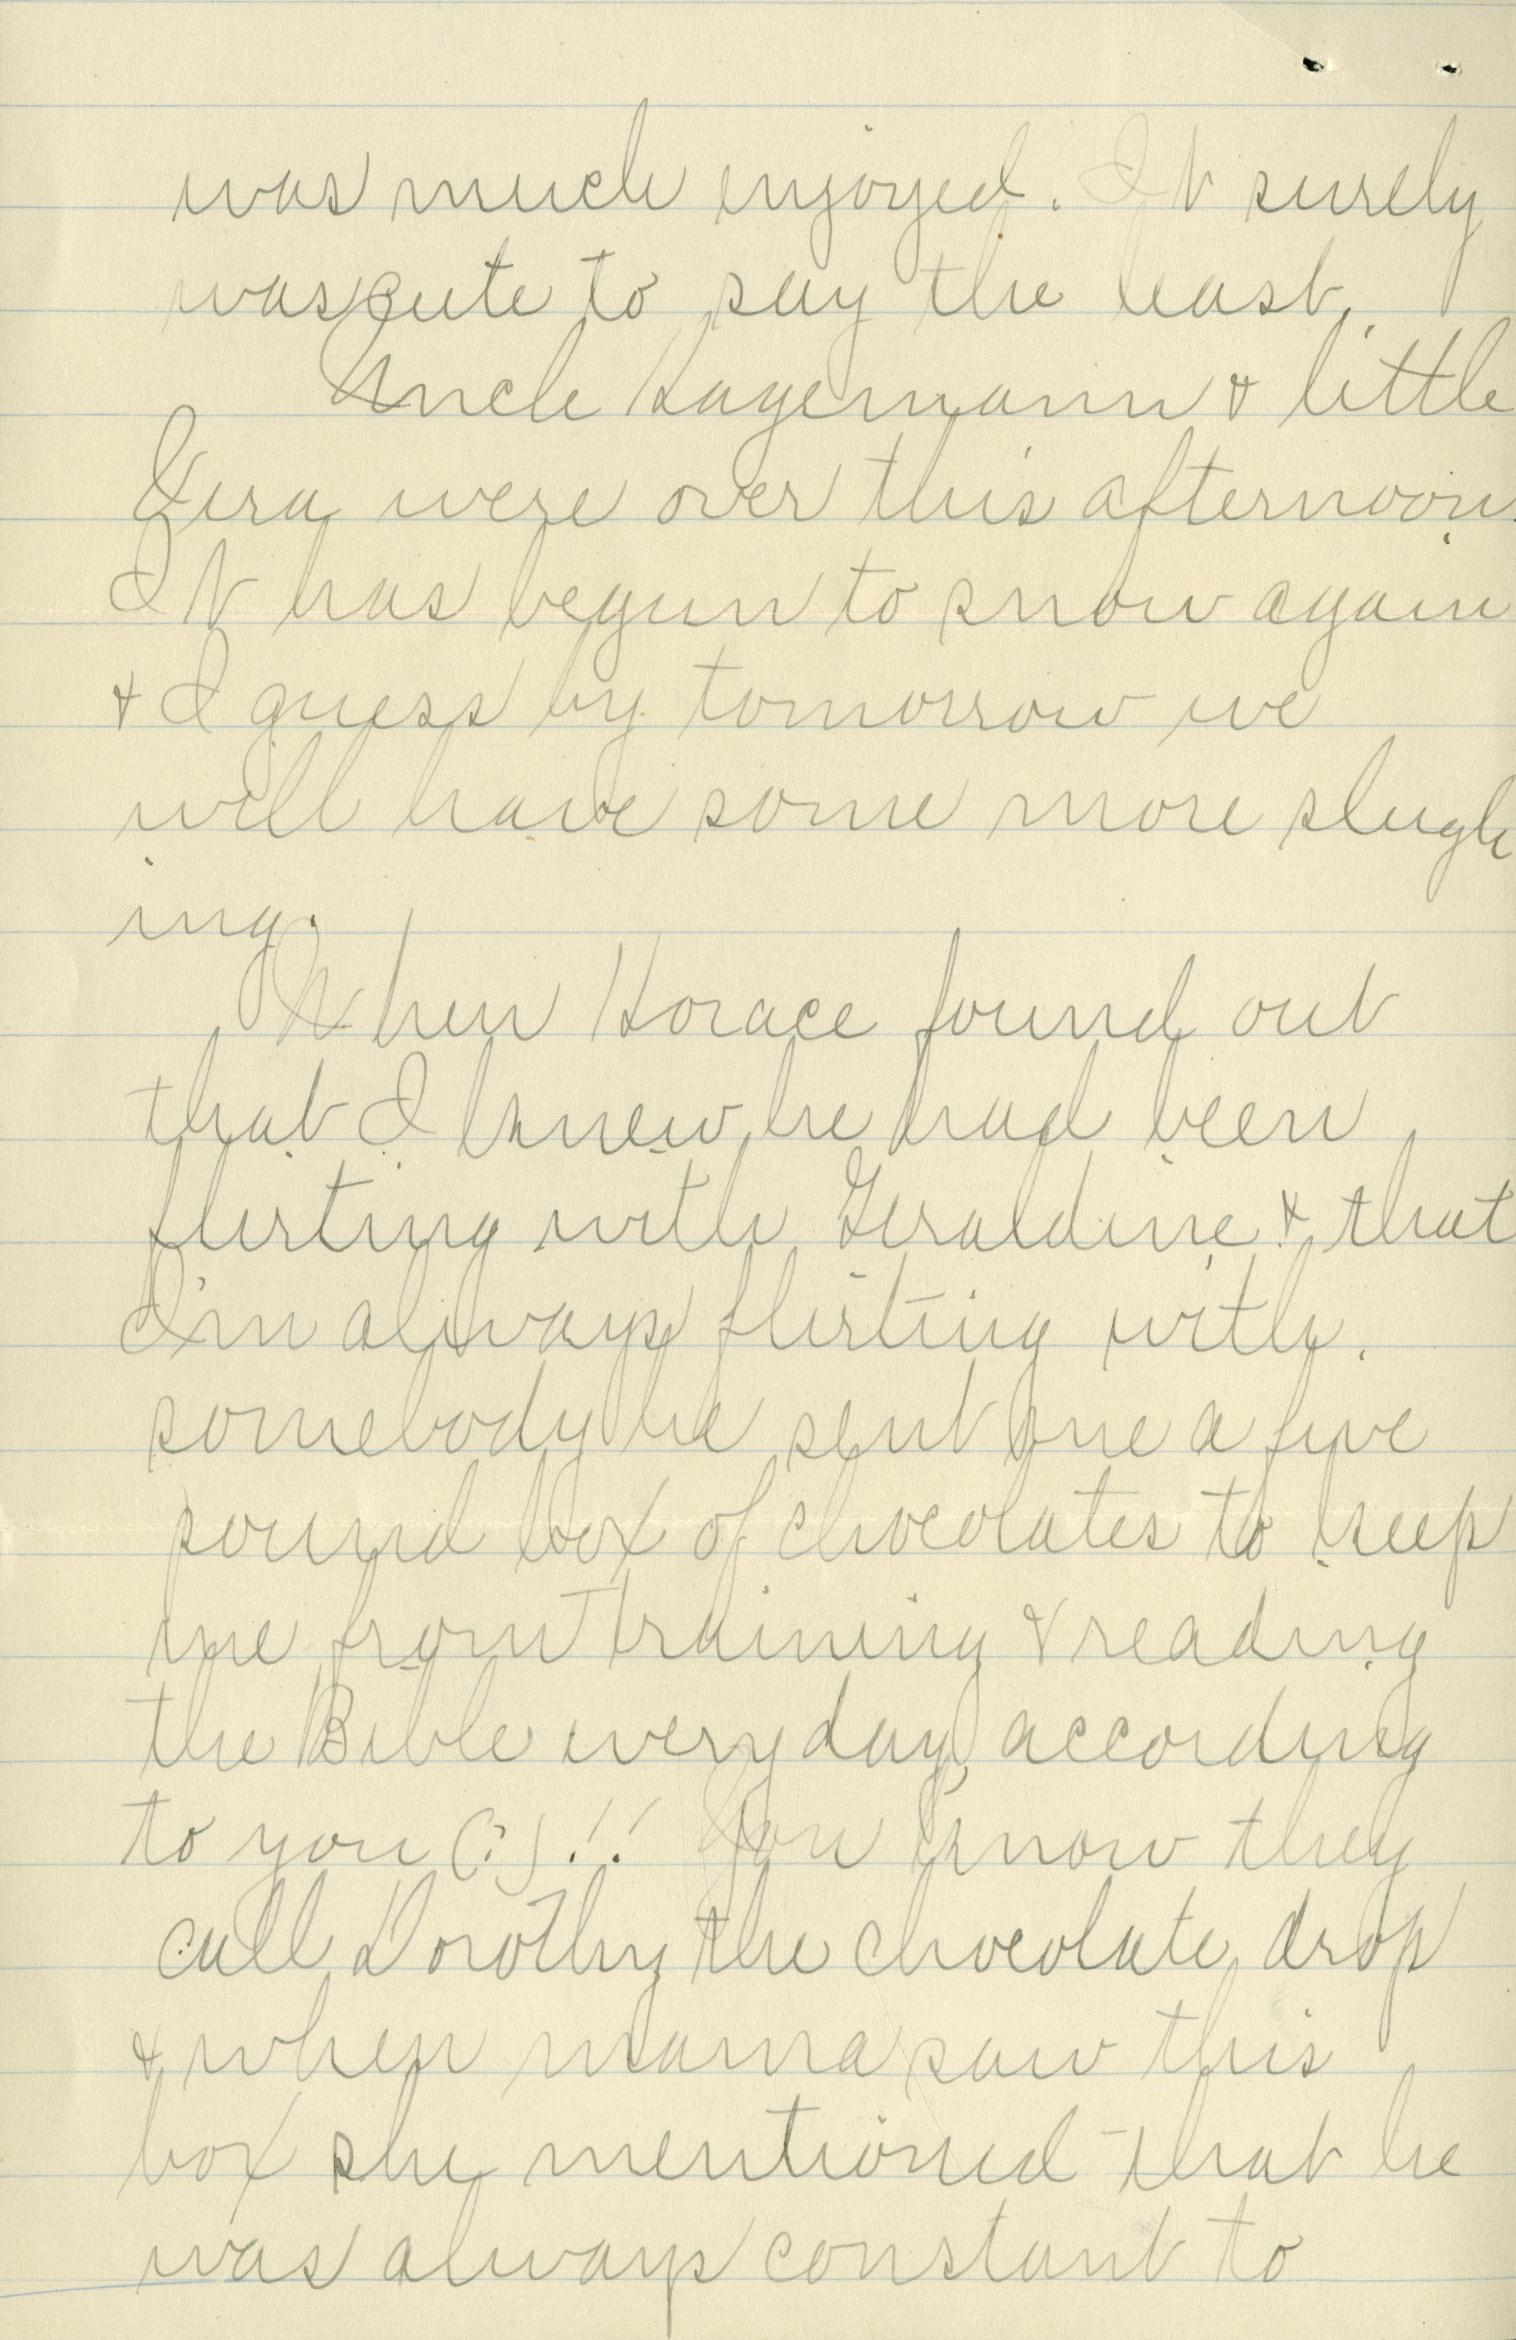 was much enjoyed. It surely
was cute to say the least.
Uncle Hagemann & little
Vera were over this afternoon.
It has begun to snow again
& I guess by tomorrow we
will have some more sleigh
ing.
When Horace found out
that I knew he had been
flirting with Geraldine & that
I'm always flirting with
somebody he sent me a five
pound box of chocolates to keep
me from training & reading
the Bible everyday, according
to you (?)!! You know they
call Dorothy the chocolate drop
& when mama saw this
box she mentioned that he
was always constant to